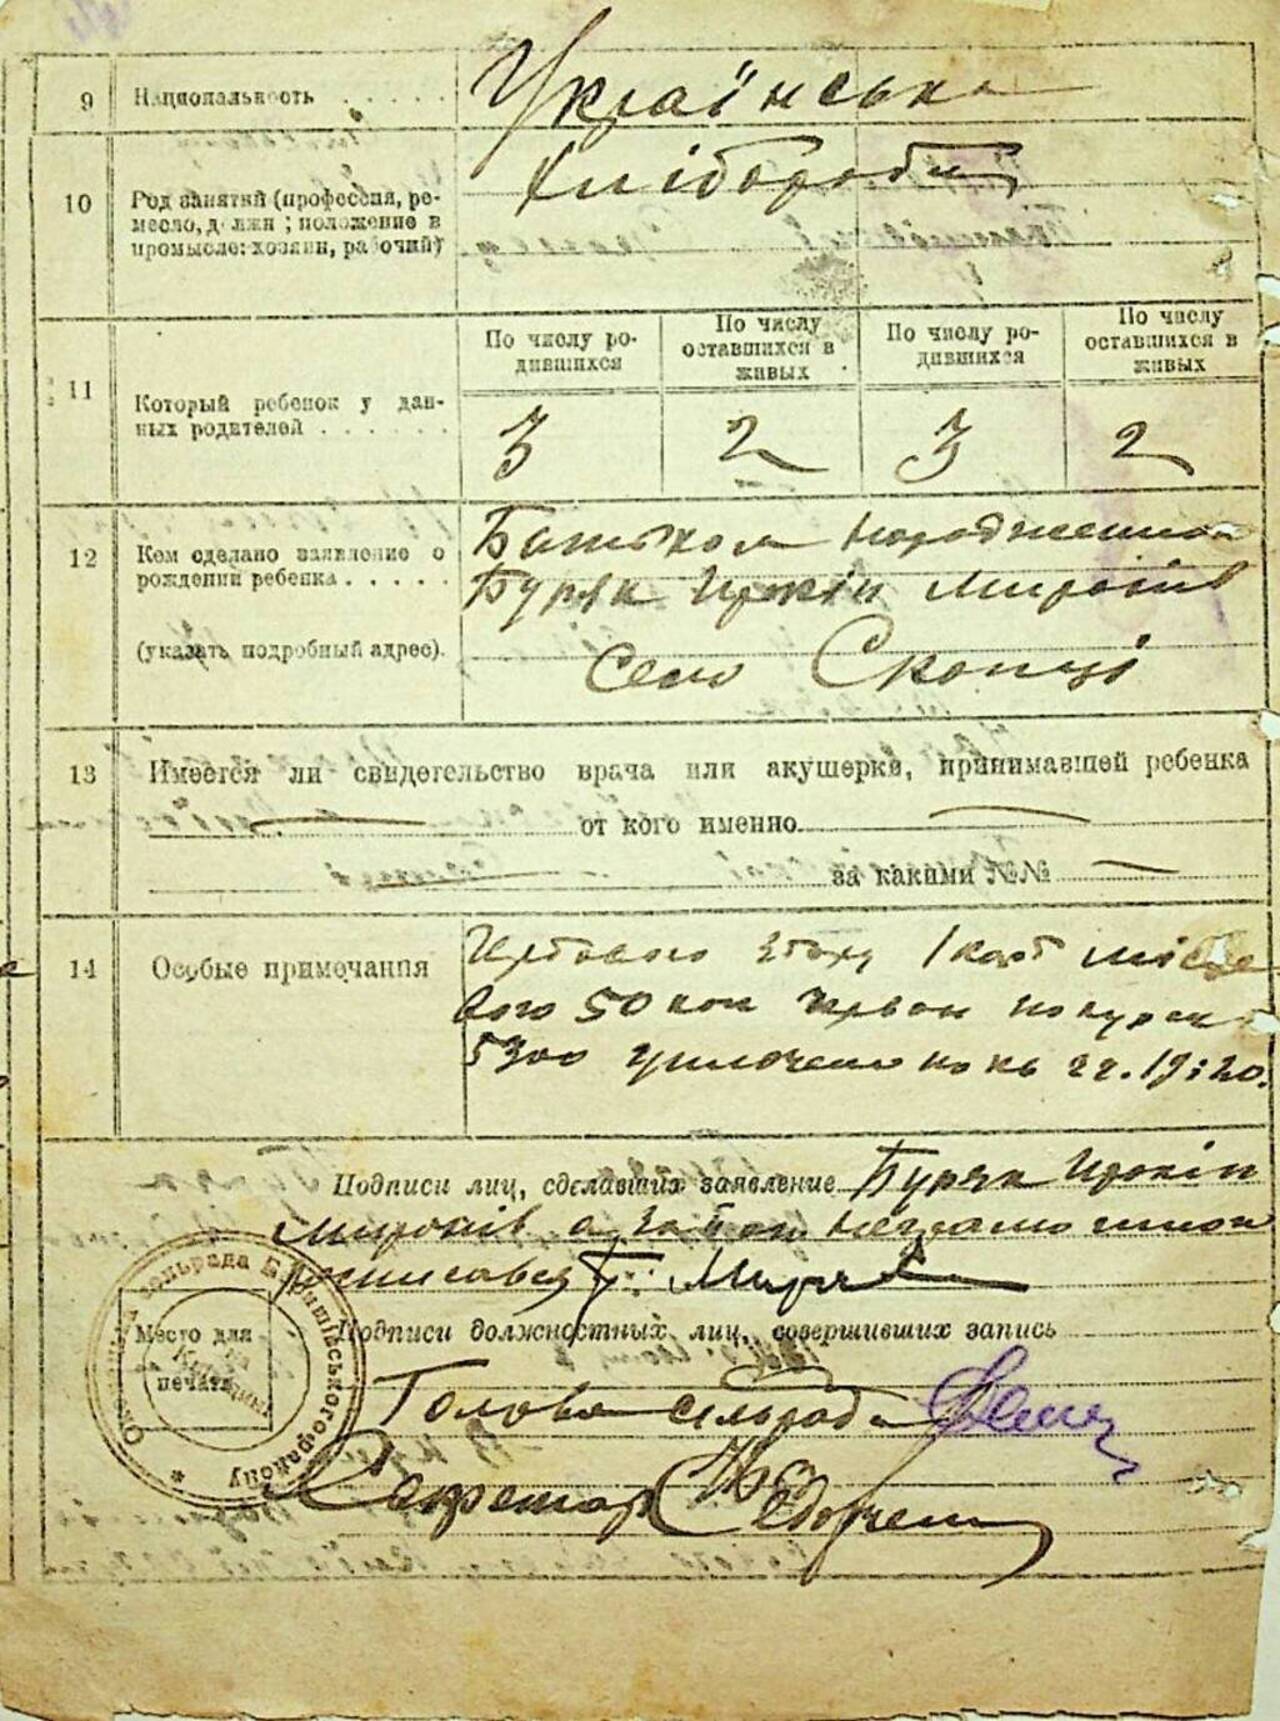 9 Национальность Українська
10 Род занятий (профессия, ре-
месло, должн ; положение в
промысле: хозяин, рабочий)
Хлібороби
11 Который ребенок у дан-
ных родителей
По числу ро-
дившихся
По числу
оставшихся в
живых
По числу ро-
дившихся
По числу
оставшихся в
живых
3 2 3 2
12 Кем сделано заявление о
рождении ребенка
(указать подробный адрес).
Батьком народженного
Буряк Йокін Миронів
Село Скопці
13 Имеется ли свидетельство врача или акушерки, принимавшей ребенка
от кого именно
за какими №№
14 Особые примечания
збору 1 карб місце
вого 50 коп по курсу
5300 уплочено по кв 22.19:20.
Подписи лиц, сделавших заявление Буряк Йокін
Миронів а за його неграмотного
росписався
Место для
печати
Подписи должностных лиц, совершивших запись
Голова сільради
Секретар